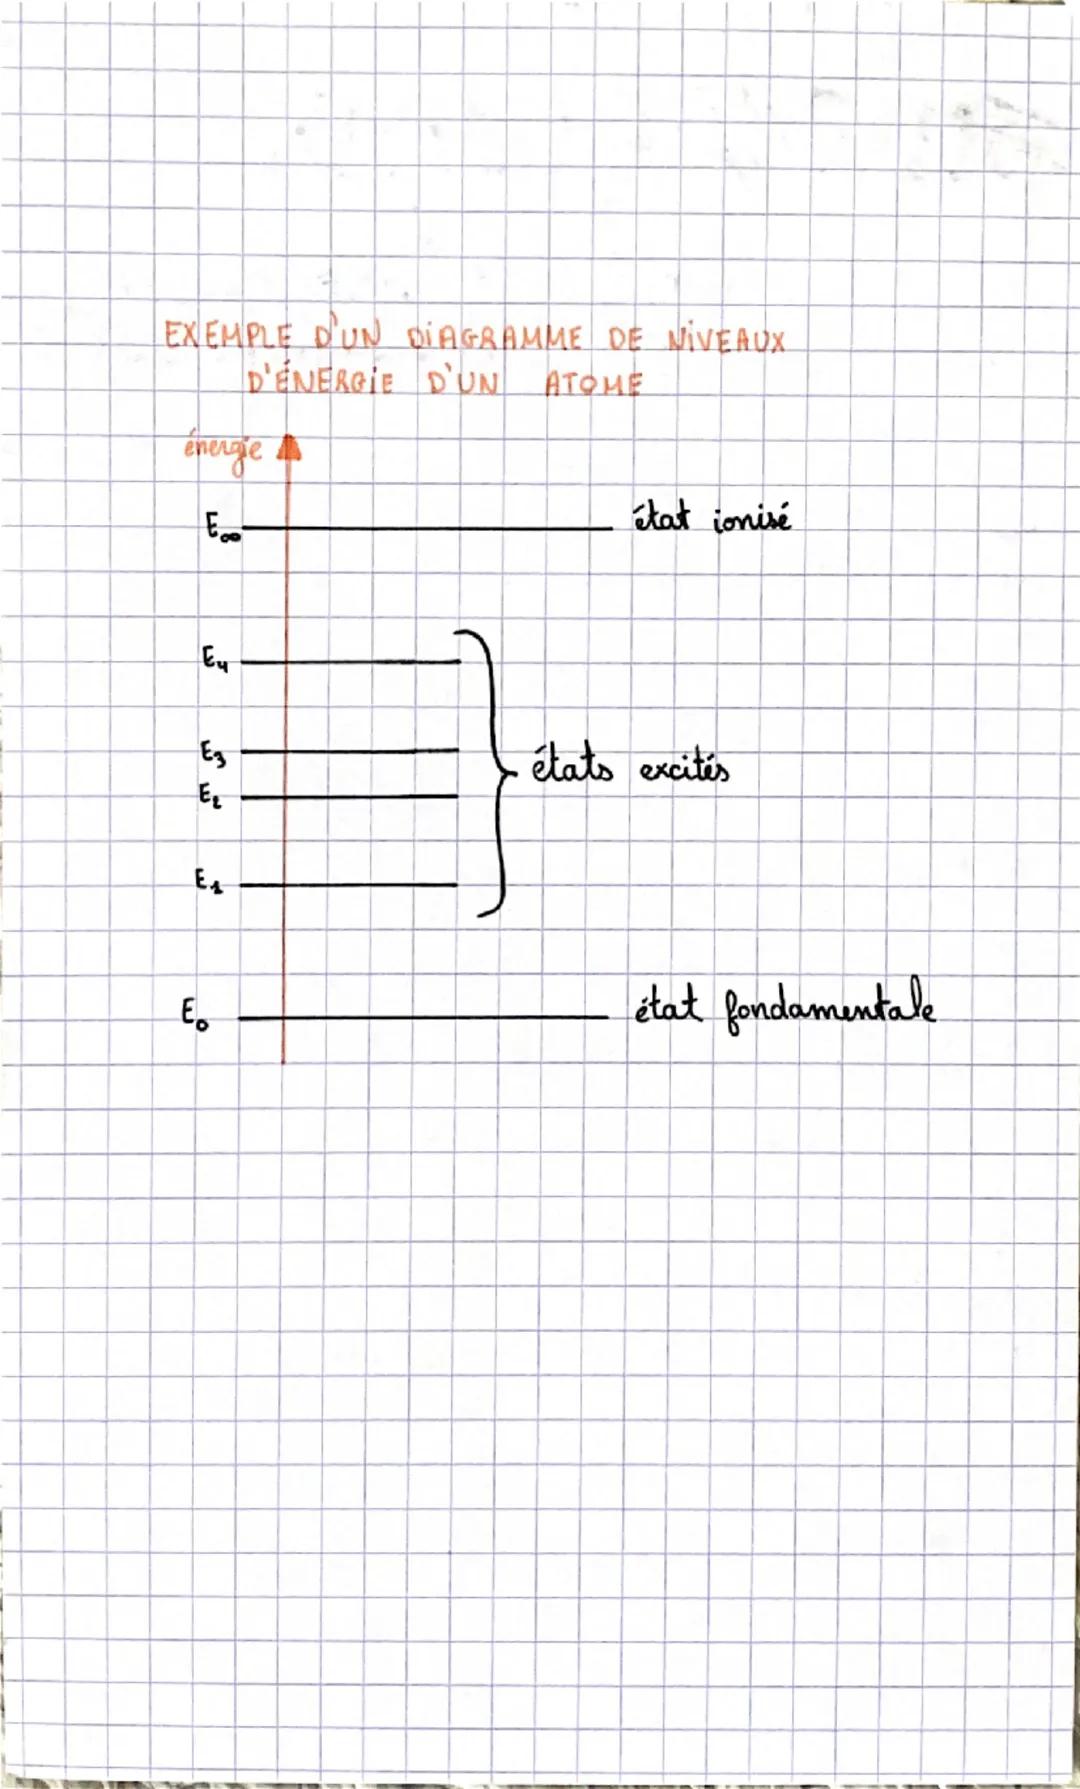 EXEMPLE D'UN DIAGRAMME DE NIVEAUX
D'ÉNERGIE D'UN ATOME
énergie
E∞ état ionisé
E4
E3
états excités
E2
E1
E0 état fondamentale